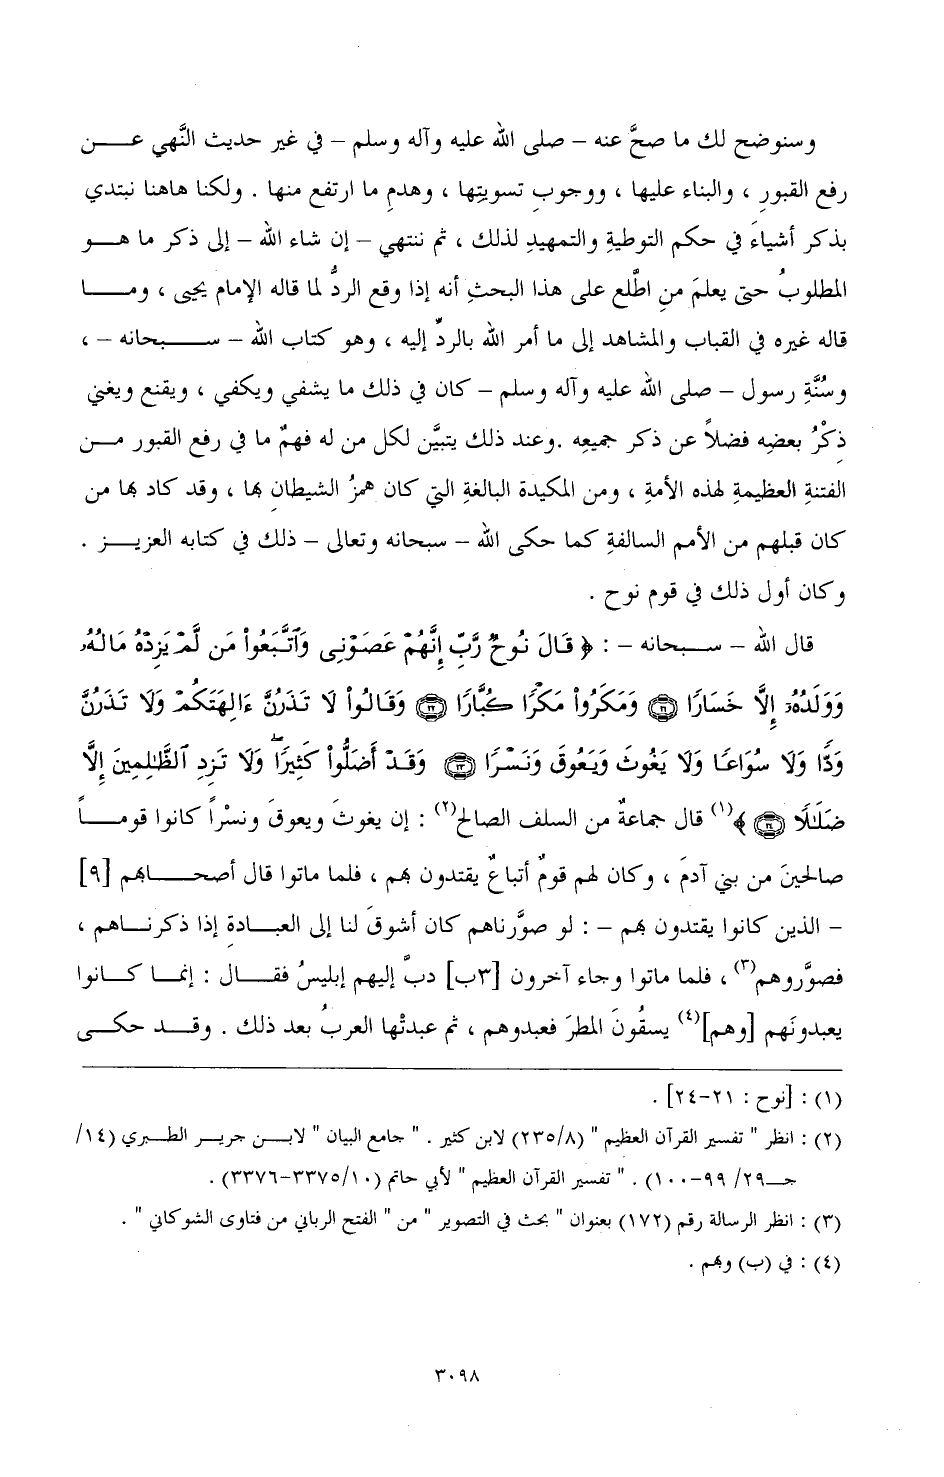 وسنوضح لك ما صحَّ عنه – صلى الله عليه وآله وسلم – في غير حديث النَّهي عـــن
رفع القبورِ ، والبناء عليها ، ووجوبِ تسويتِها ، وهدمِ ما ارتفع منها . ولكنا هاهنا نبتدي
بذكر أشياءَ في حكم التوطيةِ والتمهيدِ لذلك ، ثم ننتهي – إن شاء الله – إلى ذكر ما هـــو
المطلوبُ حتى يعلمَ منِ اطَّلع على هذا البحثِ أنه إذا وقع الردُّ لما قاله الإمام يحيى ، ومـــا
قاله غيره في القباب والمشاهد إلى ما أمر الله بالردِّ إليه ، وهو كتاب الله – ســـبحانه – ،
وسُنَّةِ رسول – صلى الله عليه وآله وسلم – كان في ذلك ما يشفي ويكفي ، ويقنع ويغني
ذكْرُ بعضِه فضلاً عن ذكر جميعِه .وعند ذلك يتبيَّن لكل من له فهمٌ ما في رفع القبور مـــن
الفتنةِ العظيمةِ لهذه الأمةِ ، ومن المكيدة البالغةِ التي كان همزُ الشيطانِ بها ، وقد كاد بها من
كان قبلهم من الأمم السالفةِ كما حكى الله – سبحانه وتعالى – ذلك في كتابه العزيـــز .
وكان أول ذلك في قوم نوح .
قال الله – ســـبحانه – : ﴿ قَالَ نُوحٌ رَّبِّ إِنَّهُمْ عَصَوْنِى وَٱتَّبَعُوا۟ مَن لَّمْ يَزِدْهُ مَالُهُۥ
وَوَلَدُهُۥٓ إِلَّا خَسَارًا ۝٢١ وَمَكَرُوا۟ مَكْرًا كُبَّارًا ۝٢٢ وَقَالُوا۟ لَا تَذَرُنَّ ءَالِهَتَكُمْ وَلَا تَذَرُنَّ
وَدًّا وَلَا سُوَاعًا وَلَا يَغُوثَ وَيَعُوقَ وَنَسْرًا ۝٢٣ وَقَدْ أَضَلُّوا۟ كَثِيرًا ۖ وَلَا تَزِدِ ٱلظَّٰلِمِينَ إِلَّا
ضَلَٰلًا ۝٢٤ ﴾(١) قال جماعةٌ من السلف الصالح(٢) : إن يغوثَ ويعوقَ ونسْراً كانوا قومـــاً
صالحينَ من بني آدمَ ، وكان لهم قومٌ أتباعٌ يقتدون بهم ، فلما ماتوا قال أصحـــابهم [٩]
– الذين كانوا يقتدون بهم – : لو صوَّرناهم كان أشوقَ لنا إلى العبـــادةِ إذا ذكرنـــاهم ،
فصوَّروهم(٣) ، فلما ماتوا وجاء آخرون [٣ب] دبَّ إليهم إبليسُ فقـــال : إنمـــا كـــانوا
يعبدونَهم [وهم](٤) يسقُونَ المطرَ فعبدوهم ، ثم عبدتْها العربُ بعد ذلك . وقـــد حكـــى
(١) : [نوح : ٢١-٢٤] .
(٢) : انظر " تفسير القرآن العظيم " (٢٣٥/٨) لابن كثير . " جامع البيان " لابـــن جريـــر الطـــبري (١٤/
جـ٢٩/ ٩٩-١٠٠) . " تفسير القرآن العظيم " لأبي حاتم (٣٣٧٥/١٠-٣٣٧٦) .
(٣) : انظر الرسالة رقم (١٧٢) بعنوان " بحث في التصوير " من " الفتح الرباني من فتاوى الشوكاني " .
(٤) : في (ب) وبهم .
٣٠٩٨